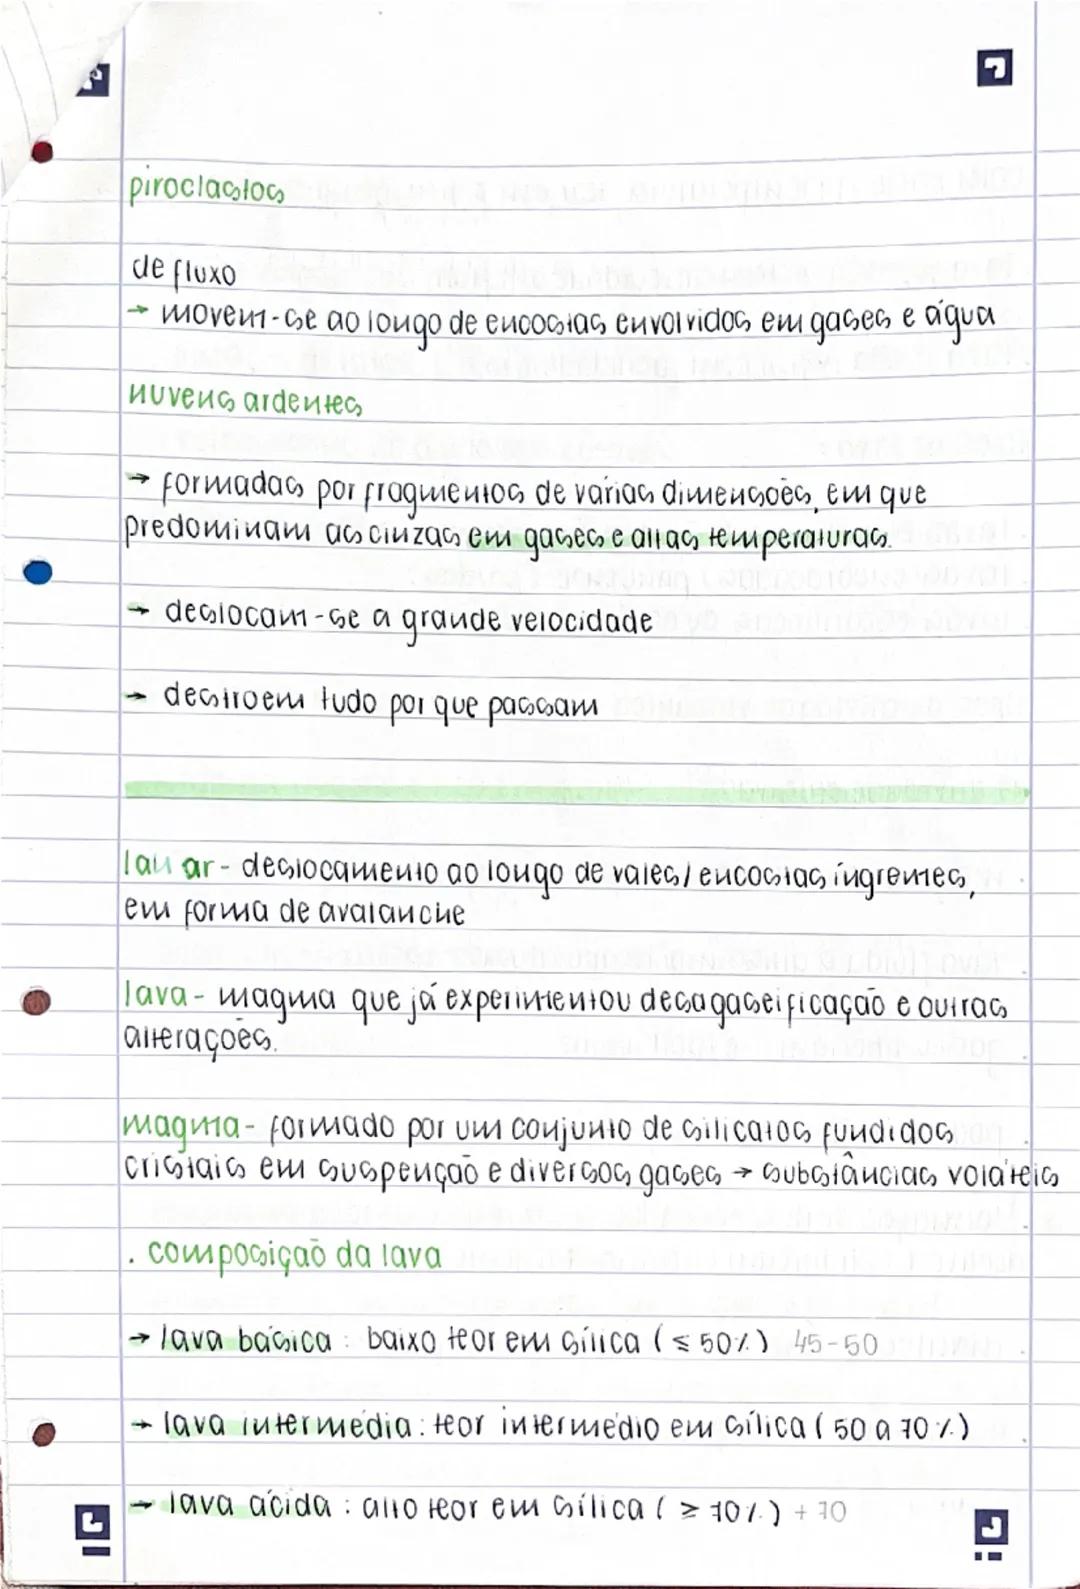 piroclastos
de fluxo
→ movem-se ao longo de encostas envolvidos em gases e água
nuvens ardentes
→ formadas por fragmentos de várias dimensões, em que
predominam as cinzas em gases e altas temperaturas.
→ deslocam-se a grande velocidade
→ destroem tudo por que passam
lahar - deslocamento ao longo de vales/encostas íngremes,
em forma de avalanche
lava - magma que já experimentou desgaseificação e outras
alterações.
magma - formado por um conjunto de silicatos fundidos
cristais em suspenção e diversos gases → substâncias voláteis
. composição da lava
→ lava básica : baixo teor em sílica (≤ 50%) 45-50
→ lava intermédia : teor intermédio em sílica (50 a 70%)
→ lava ácida : alto teor em sílica (≥ 70%) + 70